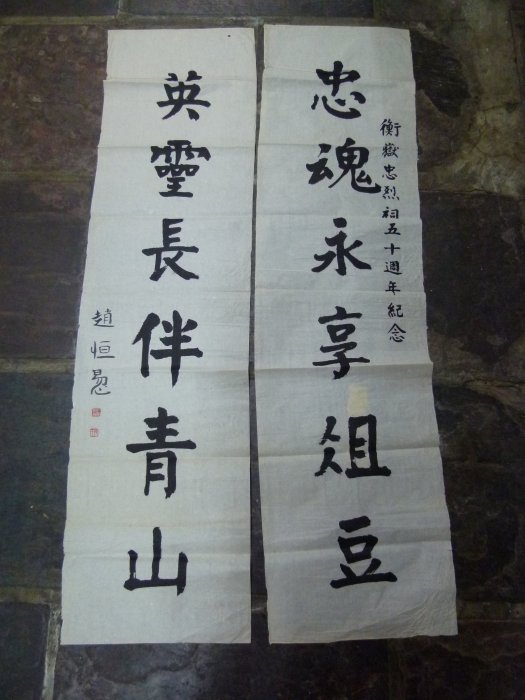 衡嶽忠烈祠五十週年紀念
忠魂永享俎豆
英靈長伴青山
趙恒惖